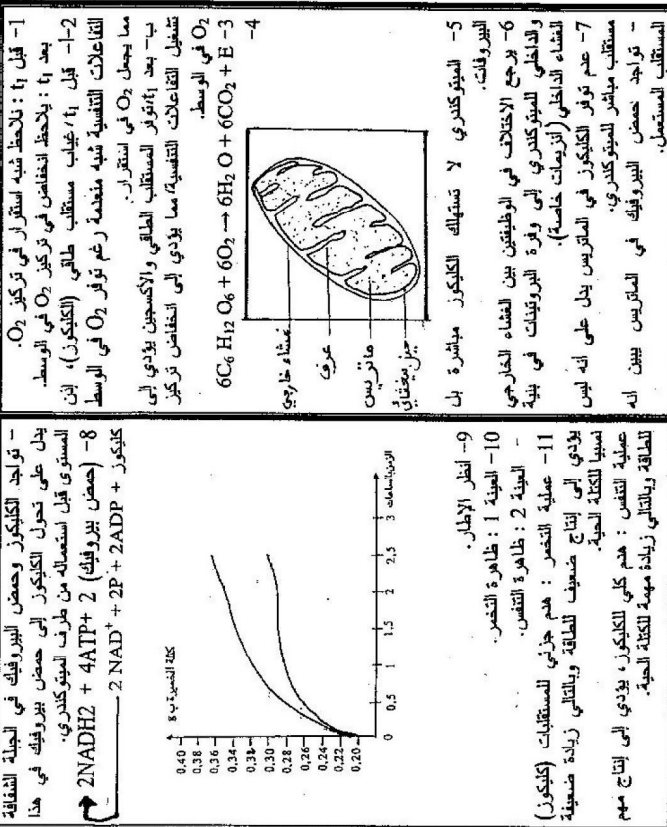 1- قبل t₁ : نلاحظ شبه استقرار في تركيز O₂.
بعد t₁ : يلاحظ انخفاض في تركيز O₂ في الوسط.
2-أ- قبل t₁/غياب مستقلب طاقي (الكليكوز)، إذن
التفاعلات التنفسية شبه منعدمة رغم توفر O₂ في الوسط
مما يجعل O₂ في استقرار.
ب- بعد t₁/توفر المستقلب الطاقي والأكسجين يؤدي إلى
تشغيل التفاعلات التنفسية/مما يؤدي إلى انخفاض تركيز
O₂ في الوسط.
3- 6C₆ H₁₂ O₆ + 6O₂ → 6H₂ O + 6CO₂ + E
4-
غشاء خارجي
عرف
ماتريس
حيز بيغشائي
5- الميتوكندري لا تستهلك الكليكوز مباشرة بل
البيروفات.
6- يرجع الاختلاف في الوظيفتين بين الغشاء الخارجي
والداخلي للميتوكندري إلى وفرة البروتينات في بنية
الغشاء الداخلي (أنزيمات خاصة).
7- عدم توفر الكليكوز في الماتريس يدل على انه ليس
مستقلب مباشر للميتوكندري.
- تواجد حمض البيروفيك في الماتريس يبين انه
المستقلب المستعمل.
- تواجد الكليكوز وحمض البيروفيك في الجبلة الشفافة
يدل على تحول الكليكوز إلى حمض بيروفيك في هذا
المستوى قبل استعماله من طرف الميتوكندري.
8- (حمض بيروفيك) 2 +2NADH2 + 4ATP
2 NAD⁺ + 2P + 2ADP + كليكوز
كتلة الخميرة ب g
0,40
0,38
0,36
0,34
0,32
0,30
0,28
0,26
0,24
0,22
0,20
0 0,5 1 1,5 2 2,5 3
الزمن بالساعات
9- انظر الإطار.
10- العينة 1 : ظاهرة التخمر.
- العينة 2 : ظاهرة التنفس.
11- عملية التخمر : هدم جزئي للمستقلبات (كليكوز)
يؤدي إلى إنتاج ضعيف للطاقة وبالتالي زيادة ضعيفة
نسبيا للكتلة الحية.
عملية التنفس : هدم كلي للكليكوز، يؤدي إلى إنتاج مهم
للطاقة وبالتالي زيادة مهمة للكتلة الحية.